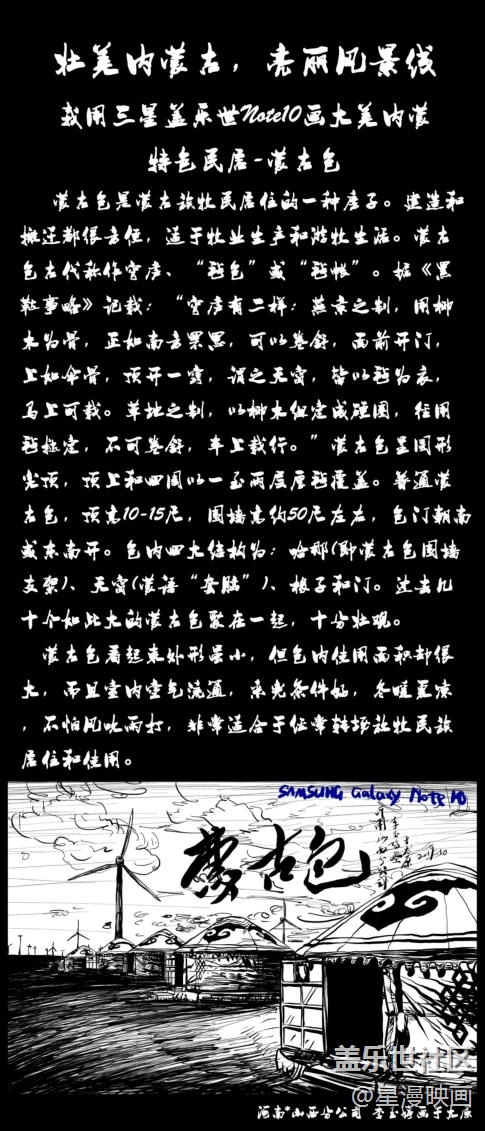 壮美内蒙古，亮丽风景线
我用三星盖乐世Note10画大美内蒙
特色民居-蒙古包
蒙古包是蒙古族牧民居住的一种房子。建造和
搬迁都很方便，适于牧业生产和游牧生活。蒙古
包古代称作穹庐、“毡包”或“毡帐”。据《黑
鞑事略》记载：“穹庐有二样：燕京之制，用柳
木为骨，正如南方罘罳，可以卷舒，面前开门，
上如伞骨，顶开一窍，谓之天窗，皆以毡为衣，
马上可载。草地之制，以柳木组定成硬圈，径用
毡挞定，不可卷舒，车上载行。”蒙古包呈圆形
尖顶，顶上和四周以一至两层厚毡覆盖。普通蒙
古包，顶高10-15尺，围墙高约50尺左右，包门朝南
或东南开。包内四大结构为：哈那(即蒙古包围墙
支架)、天窗(蒙语“套脑”)、椽子和门。过去几
十个如此大的蒙古包聚在一起，十分壮观。
蒙古包看起来外形虽小，但包内使用面积却很
大，而且室内空气流通，采光条件好，冬暖夏凉
，不怕风吹雨打，非常适合于经常转场放牧民族
居住和使用。
SAMSUNG Galaxy Note 10
蒙古包
2019.10
盖乐世社区
@星漫映画
河南*山西分公司 李玉婷画于太原